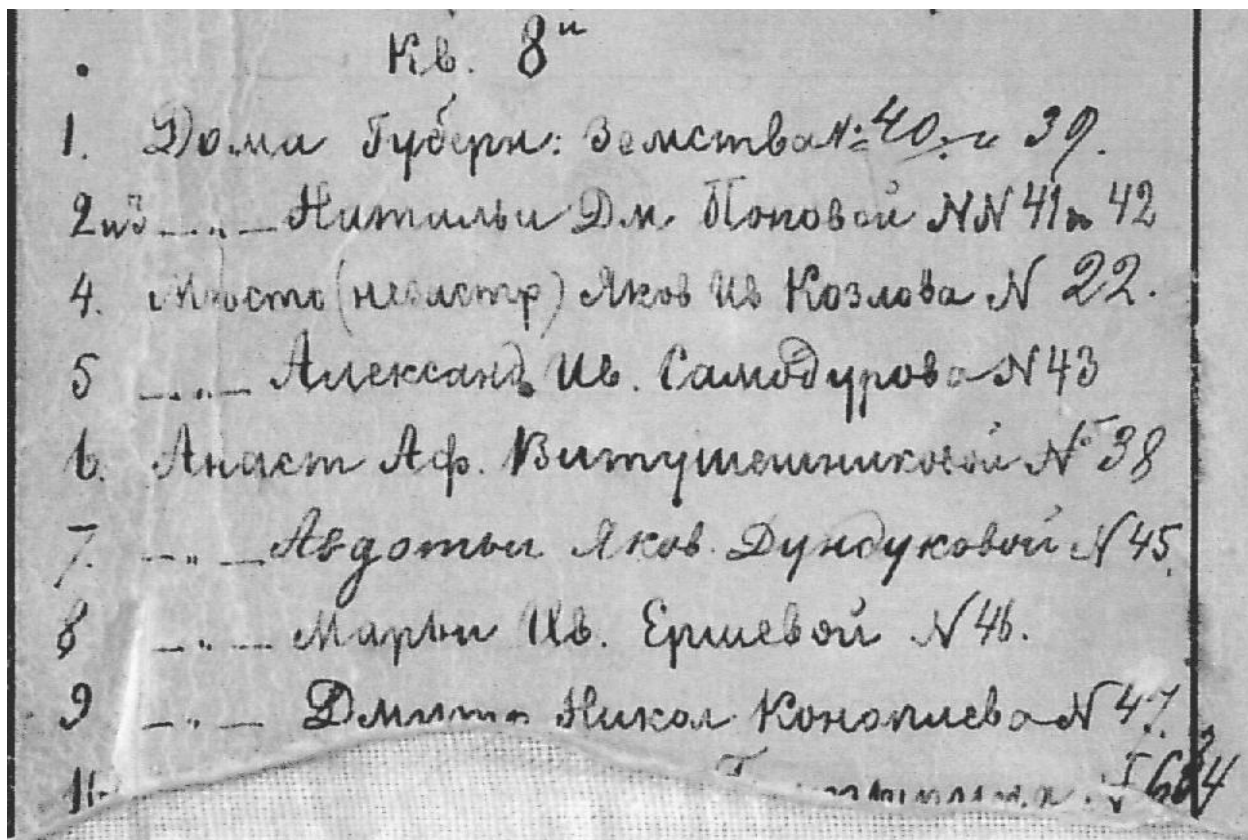 Кв. 8й
1. Дома Губерн: Земства № 40 и 39.
2 и 3 — " — Натальи Дм. Поповой NN 41 и 42
4. Место (незастр) Яков Ив Козлова N 22.
5 — " — Александ Ив. Самодурова N 43
6. Анаст Аф. Витушешниковой № 38
7. — " — Авдотьи Яков. Дундуковой N 45.
8 — " — Марьи Ив. Ершевой N 46.
9 — " — Дмитр Никол Коноплева N 47.